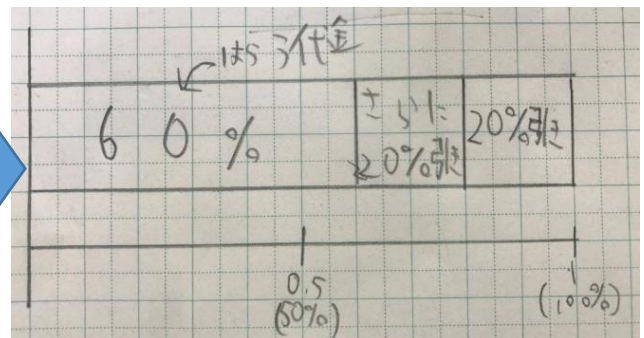 はらう代金
60%
さらに
20%引き
20%引き
0.5
(50%)
1
(100%)